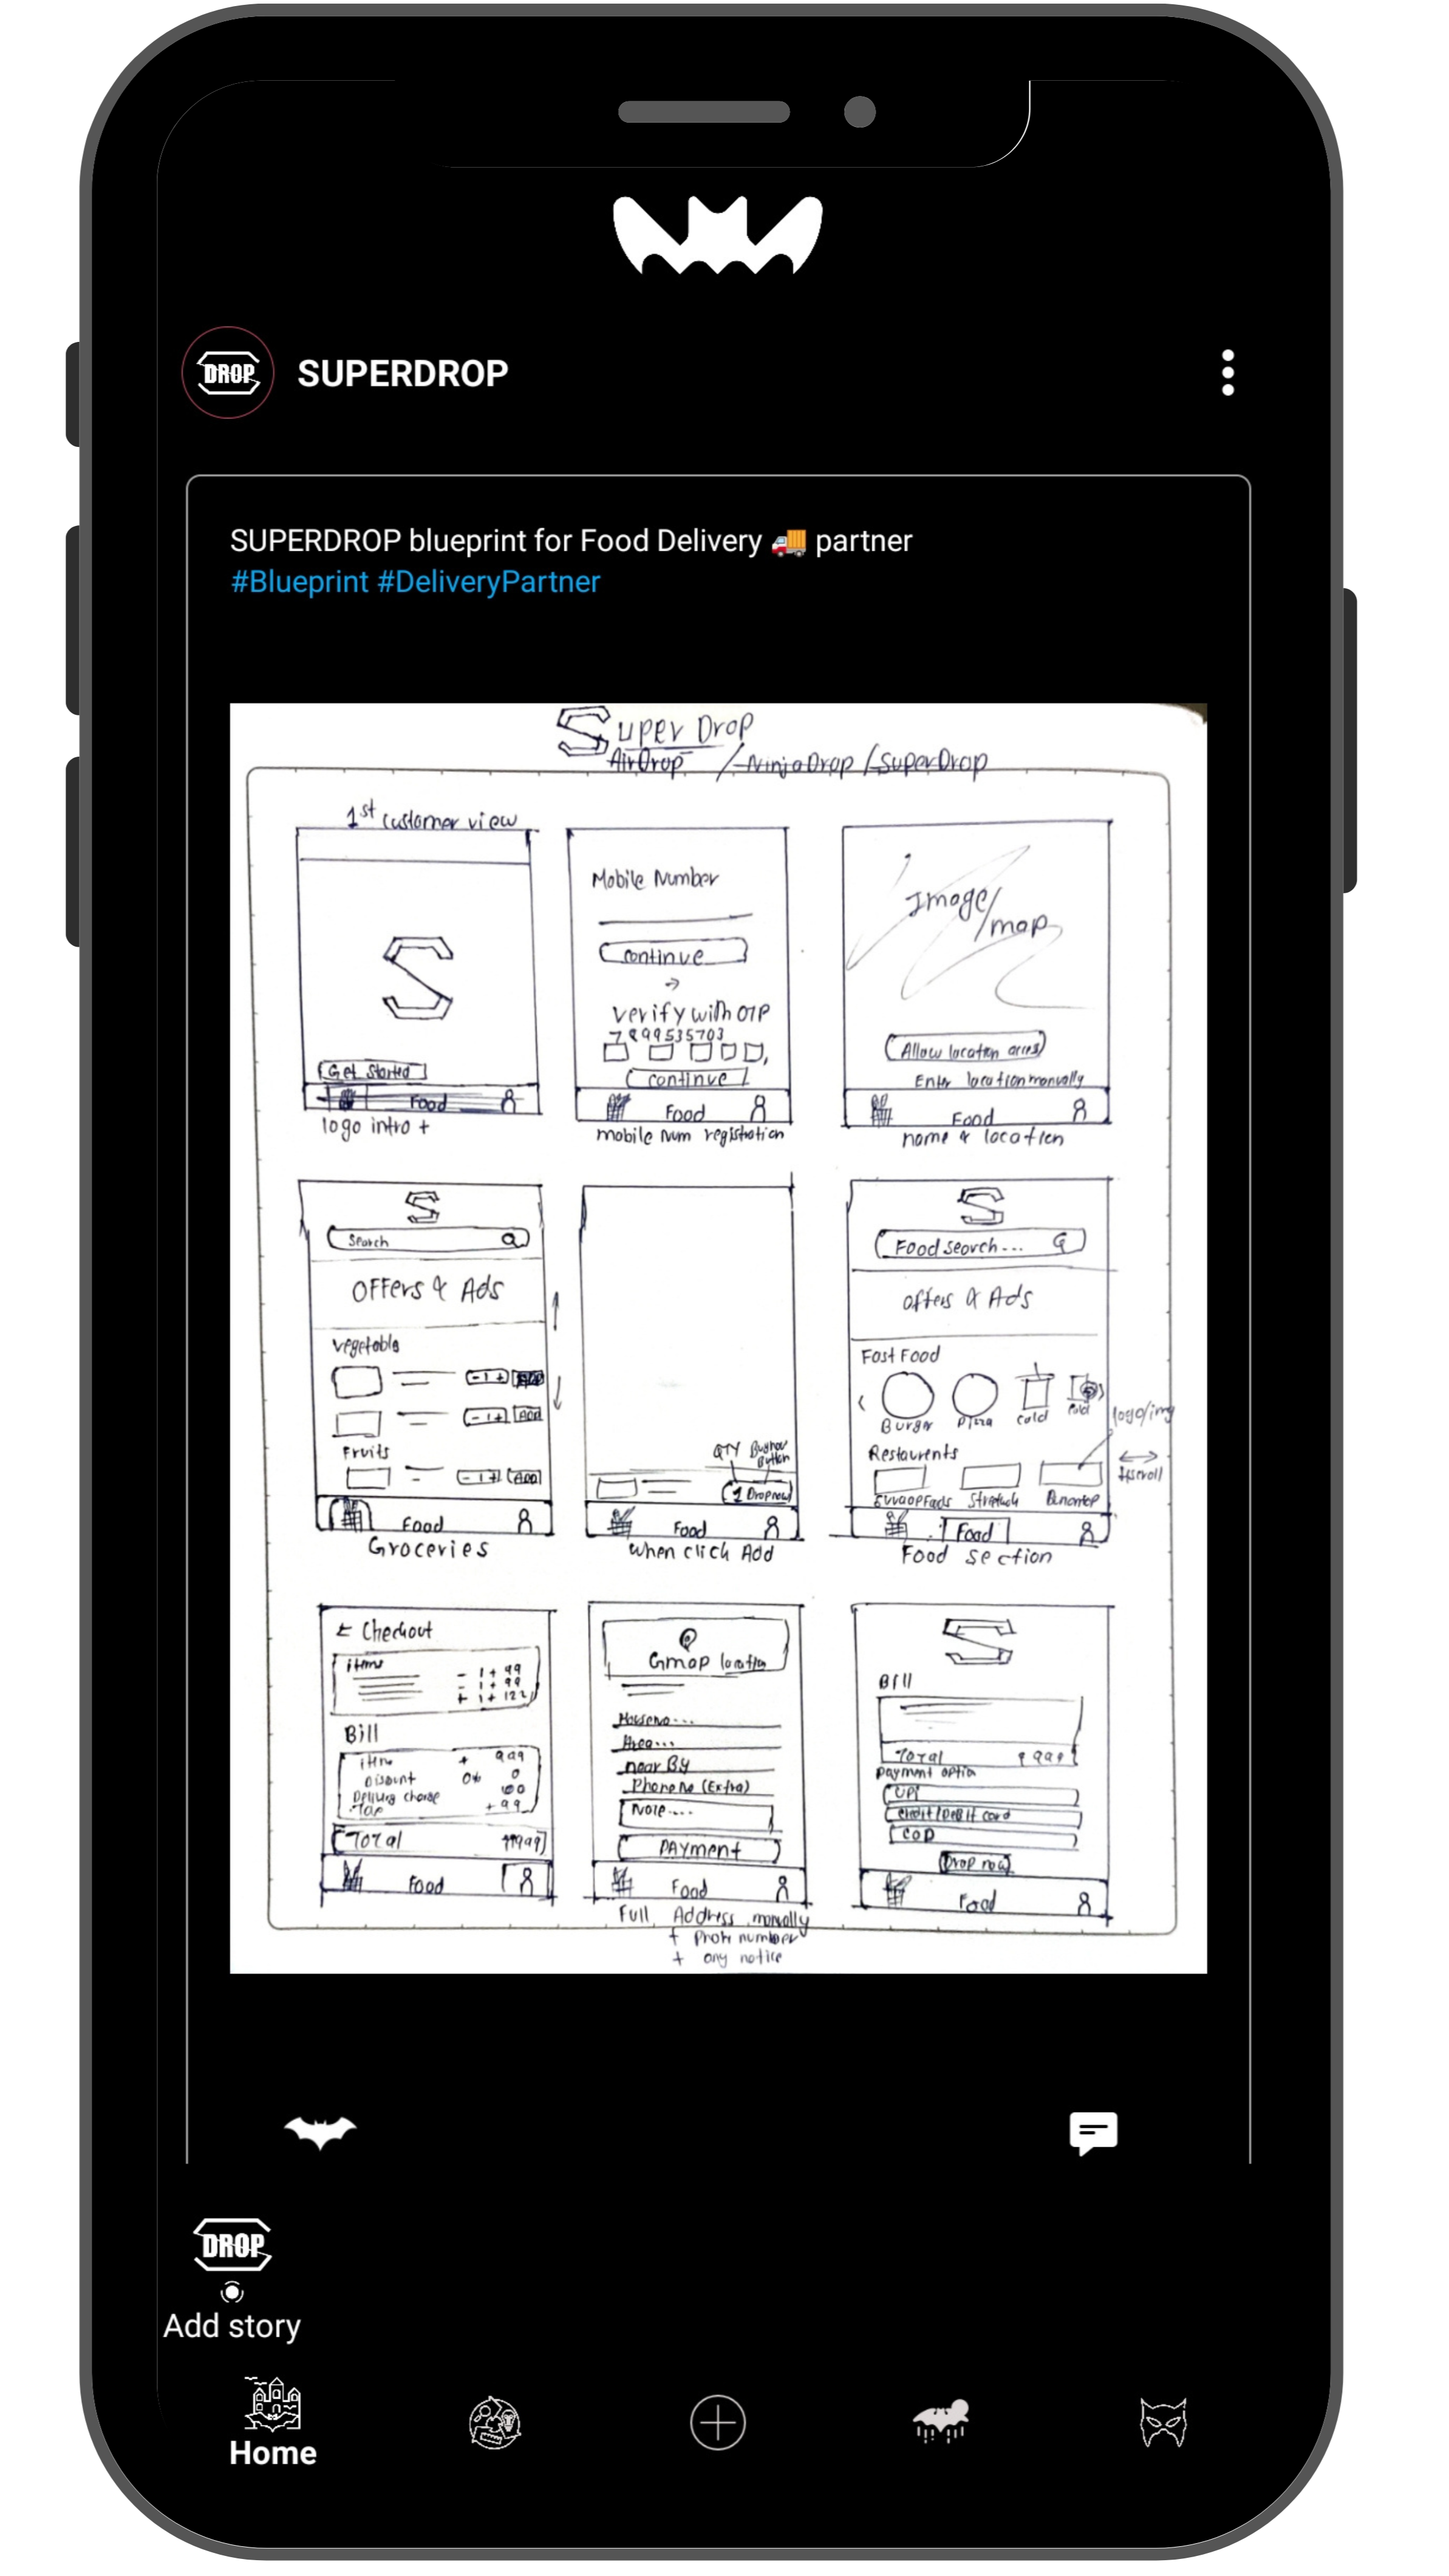 DROP
SUPERDROP
SUPERDROP blueprint for Food Delivery 🚚 partner
#Blueprint #DeliveryPartner
Super Drop
AirDrop / NinjaDrop / SuperDrop
1st customer view
S
Get Started
Food
logo intro +
Mobile Number
continue
verify with OTP
7899535703
continue
Food
mobile num registration
Image/
map
Allow location
Enter location manually
Food
name & location
S
Search
OFFers & Ads
vegetable
- 1 +
- 1 + Add
Fruits
- 1 + Add
Food
Groceries
QTY
Button
1 Dropnow
Food
when click Add
S
Food search...
offers & Ads
Fast Food
Burger Pizza cold
logo/img
Restaurents
scroll
Food
Food section
← Checkout
items
- 1 + 99
- 1 + 99
+ 1 + 122
Bill
item + 999
Discount 0% 0
Delivery charge 100
+ 99
Total
Food
Gmap location
Houseno...
Area...
near By
Phone no (Extra)
Note....
PAYment
Food
Full Address manually
+ number
+ any notice
S
Bill
Total
payment option
UPI
credit/DeBit card
COD
Drop now
Food
DROP
Add story
Home